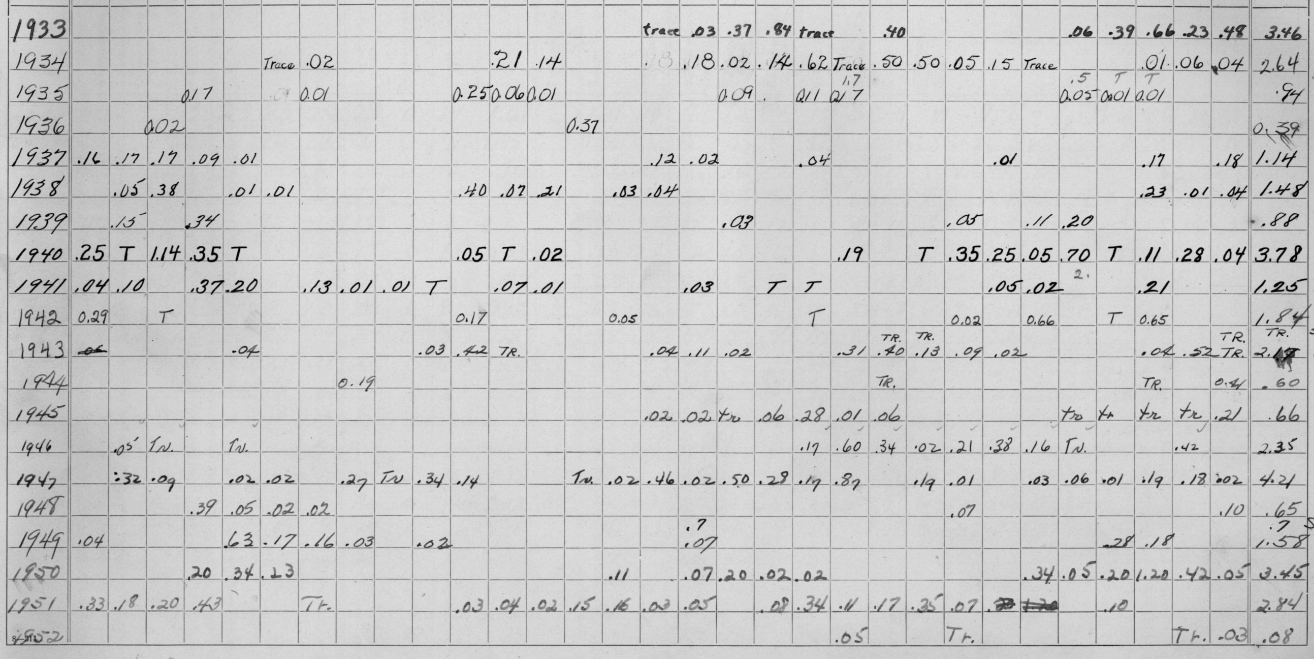 1933 trace .03 .37 .84 trace .40 .06 .39 .66 .23 .48 3.46
1934 Trace .02 .21 .14 .18 .18 .02 .14 .62 Trace .50 .50 .05 .15 Trace .01 .06 .04 2.64
1.7 .5 T T
1935 0.17 0.01 0.25 0.06 0.01 0.09 0.11 0.17 0.05 0.01 0.01 .94
1936 0.02 0.37 0.39
1937 .16 .17 .17 .09 .01 .12 .02 .04 .01 .17 .18 1.14
1938 .05 .38 .01 .01 .40 .07 .21 .03 .04 .23 .01 .04 1.48
1939 .15 .34 .03 .05 .11 .20 .88
1940 .25 T 1.14 .35 T .05 T .02 .19 T .35 .25 .05 .70 T .11 .28 .04 3.78
2.
1941 .04 .10 .37 .20 .13 .01 .01 T .07 .01 .03 T T .05 .02 .21 1.25
1942 0.29 T 0.17 0.05 T 0.02 0.66 T 0.65 1.84
TR. TR. TR. TR.
1943 .06 .04 .03 .42 TR. .04 .11 .02 .31 .40 .13 .09 .02 .04 .52 TR.
1944 0.19 TR. TR. 0.41 .60
1945 .02 .02 tr .06 .28 .01 .06 tr tr tr tr .21 .66
1946 .05 Tr. Tr. .17 .60 .34 .02 .21 .38 .16 Tr. .42 2.35
1947 .32 .09 .02 .02 .27 Tr .34 .14 Tr. .02 .46 .02 .50 .28 .19 .87 .19 .01 .03 .06 .01 .19 .18 .02 4.21
1948 .39 .05 .02 .02 .07 .10 .65
.7 .7 S
1949 .04 .63 .17 .16 .03 .02 .07 .28 .18 1.58
1950 .20 .34 .23 .11 .07 .20 .02 .02 .34 .05 .20 1.20 .42 .05 3.45
1951 .33 .18 .20 .43 Tr. .03 .04 .02 .15 .16 .03 .05 .08 .34 .11 .17 .35 .07 .10 2.84
1952 .05 Tr. Tr. .03 .08